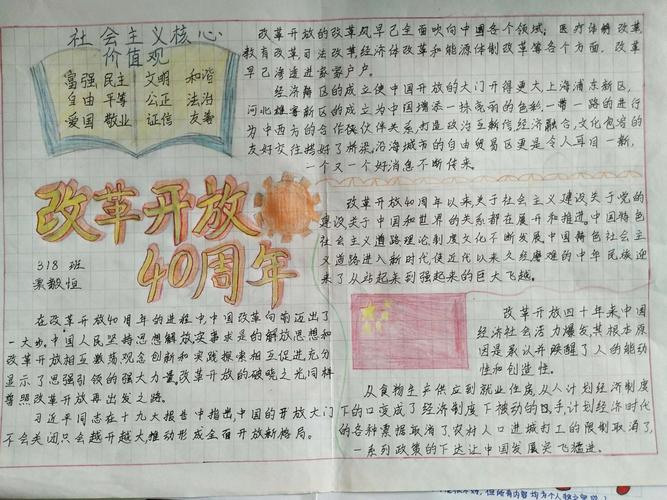 社会主义核心
价值观
富强 民主 文明 和谐
自由 平等 公正 法治
爱国 敬业 证信 友善
改革开放
40周年
318 班
改革开放的改革风早已全面吹向中国各个领域；医疗体制改革,
教育改革司法改革,经济体改革和能源体制改革等各个方面，改革
早已渗透进家家户户。
经济特区的成立使中国开放的大门开得更大,上海浦东新区,
河北雄安新区的成立为中国增添一抹亮丽的色彩,一带一路的进行
为中西方的合作伙伴关系,打造政治互新信,经济融合,文化包容的
友好交往搭好了桥梁。沿海城市的自由贸易区更是令人耳目一新,
一个又一个好消息不断传来。
改革开放40周年以来,关于社会主义建设关于党的
建设关于中国和世界的关系都在展开和推进。中国特色
社会主义道路理论制度文化不断发展,中国特色社会主
义道路进入新时代使近代以来久经磨难的中华民族迎
来了从站起来到强起来的巨大飞越。
在改革开放40周年的进程中,中国改革向前迈出了
一大步.中国人民坚持思想解放实事求是的解放思想和
改革开放相互激荡观念创新和实践探索相互促进.充分
显示了思强引领的强大力量.改革开放的破晓之光同样
普照改革开放再出发之路。
习近平同志在十九大报告中指出,中国的开放大门
不会关闭,只会越开越大,推动形成全面开放新格局。
改革开放四十年来中国
经济社会活力爆发,其根本原
因是承认并唤醒了人的能动
性和创造性。
从食物生产供应到就业住房,从人计划经济制度
下的口变成了经济制度下被动的手,计划经济时代
的各种票据取消了,农村人口进城打工的限制取消了,
一系列政策的下达让中国发展突飞猛进。